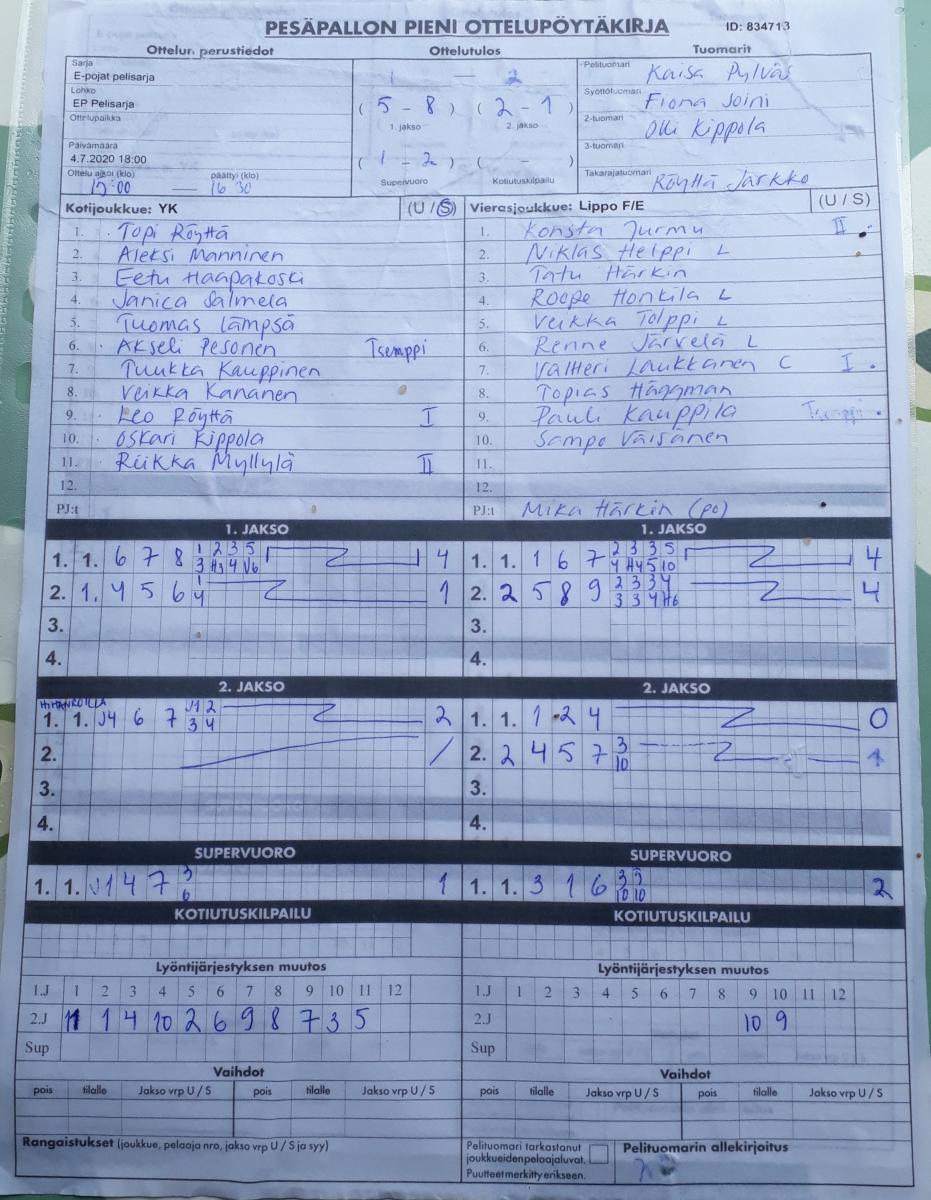 PESÄPALLON PIENI OTTELUPÖYTÄKIRJA ID: 834713
Ottelun perustiedot Ottelutulos Tuomarit
Sarja
E-pojat pelisarja
Lohko
EP Pelisarja
Ottelupaikka
Päivämäärä
4.7.2020 18:00
Ottelu alkoi (klo) päättyi (klo)
15:00 — 16 30
1 — 2
( 5 - 8 ) ( 2 - 1 )
1. jakso 2. jakso
( 1 - 2 ) ( - )
Supervuoro Kotiutuskilpailu
Pelituomari Kaisa Pylväs
Syöttötuomari Fiona Joini
2-tuomari Olli Kippola
3-tuomari
Takarajatuomari Röyttä Jarkko
Kotijoukkue: YK (U / S)
1. Topi Röyttä
2. Aleksi Manninen
3. Eetu Haapakoski
4. Janica Salmela
5. Tuomas Lämpsä
6. Akseli Pesonen Tsemppi
7. Tuukka Kauppinen
8. Veikka Kananen
9. Leo Röyttä I
10. Oskari Kippola
11. Riikka Myllylä II
12.
PJ:t
Vierasjoukkue: Lippo F/E (U / S)
1. Konsta Jurmu II
2. Niklas Helppi L
3. Tatu Härkin
4. Roope Honkila L
5. Veikka Tolppi L
6. Renne Järvelä L
7. Valtteri Laukkanen C I
8. Topias Häggman
9. Pauli Kauppila Tsemppi
10. Sampo Väisänen
11.
12.
PJ:t Mika Härkin (PO)
1. JAKSO 1. JAKSO
1. 1. 6 7 8 1 2 3 5 4
3 H3 4 V6
2. 1. 4 5 6 1 1
4
3.
4.
1. 1. 1 6 7 2 3 3 5 4
4 H4 5 10
2. 2 5 8 9 2 3 3 4 4
3 3 4 H6
3.
4.
2. JAKSO 2. JAKSO
1. 1. J4 6 7 J1 2 2
3 4
2. /
3.
4.
1. 1. 1 2 4 0
2. 2 4 5 7 3 1
10
3.
4.
SUPERVUORO SUPERVUORO
1. 1. J1 4 7 3 1
6
1. 1. 3 1 6 3 5 2
10 10
KOTIUTUSKILPAILU KOTIUTUSKILPAILU
Lyöntijärjestyksen muutos Lyöntijärjestyksen muutos
1.J 1 2 3 4 5 6 7 8 9 10 11 12
2.J 11 1 4 10 2 6 9 8 7 3 5
Sup
1.J 1 2 3 4 5 6 7 8 9 10 11 12
2.J 10 9
Sup
Vaihdot Vaihdot
pois tilalle Jakso vrp U / S pois tilalle Jakso vrp U / S
pois tilalle Jakso vrp U / S pois tilalle Jakso vrp U / S
Rangaistukset (joukkue, pelaaja nro, jakso vrp U / S ja syy)
Pelituomari tarkastanut
joukkueiden pelaajaluvat.
Puutteet merkitty erikseen.
Pelituomarin allekirjoitus